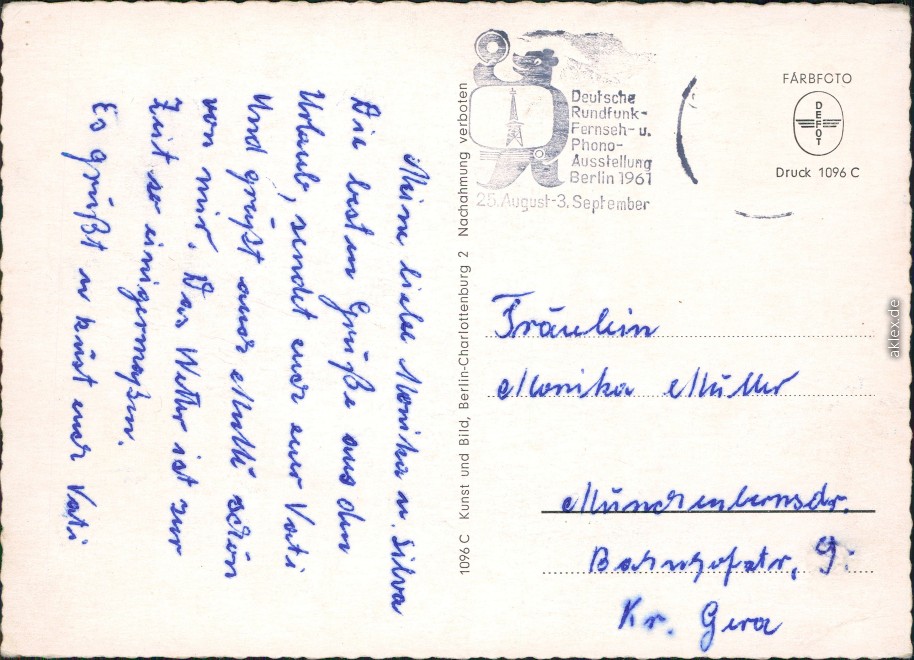 Meine liebe Monika u. Silva
Die besten Grüße aus den
Urlaub, sendet euch eur Vati
Und grüßt auch Mutti schön
von mir. Das Wetter ist zur
Zeit so einigermaßen.
Es grüßt u küst euch Vati
1096 C Kunst und Bild, Berlin-Charlottenburg 2 Nachahmung verboten
Deutsche
Rundfunk-
Fernseh- u.
Phono-
Ausstellung
Berlin 1961
25. August-3. September
FARBFOTO
DEFOT
Druck 1096 C
Fräulein
Monika Müller
Münchenbernsdr.
Bahnhofstr, 9.
Kr. Gera
aklex.de